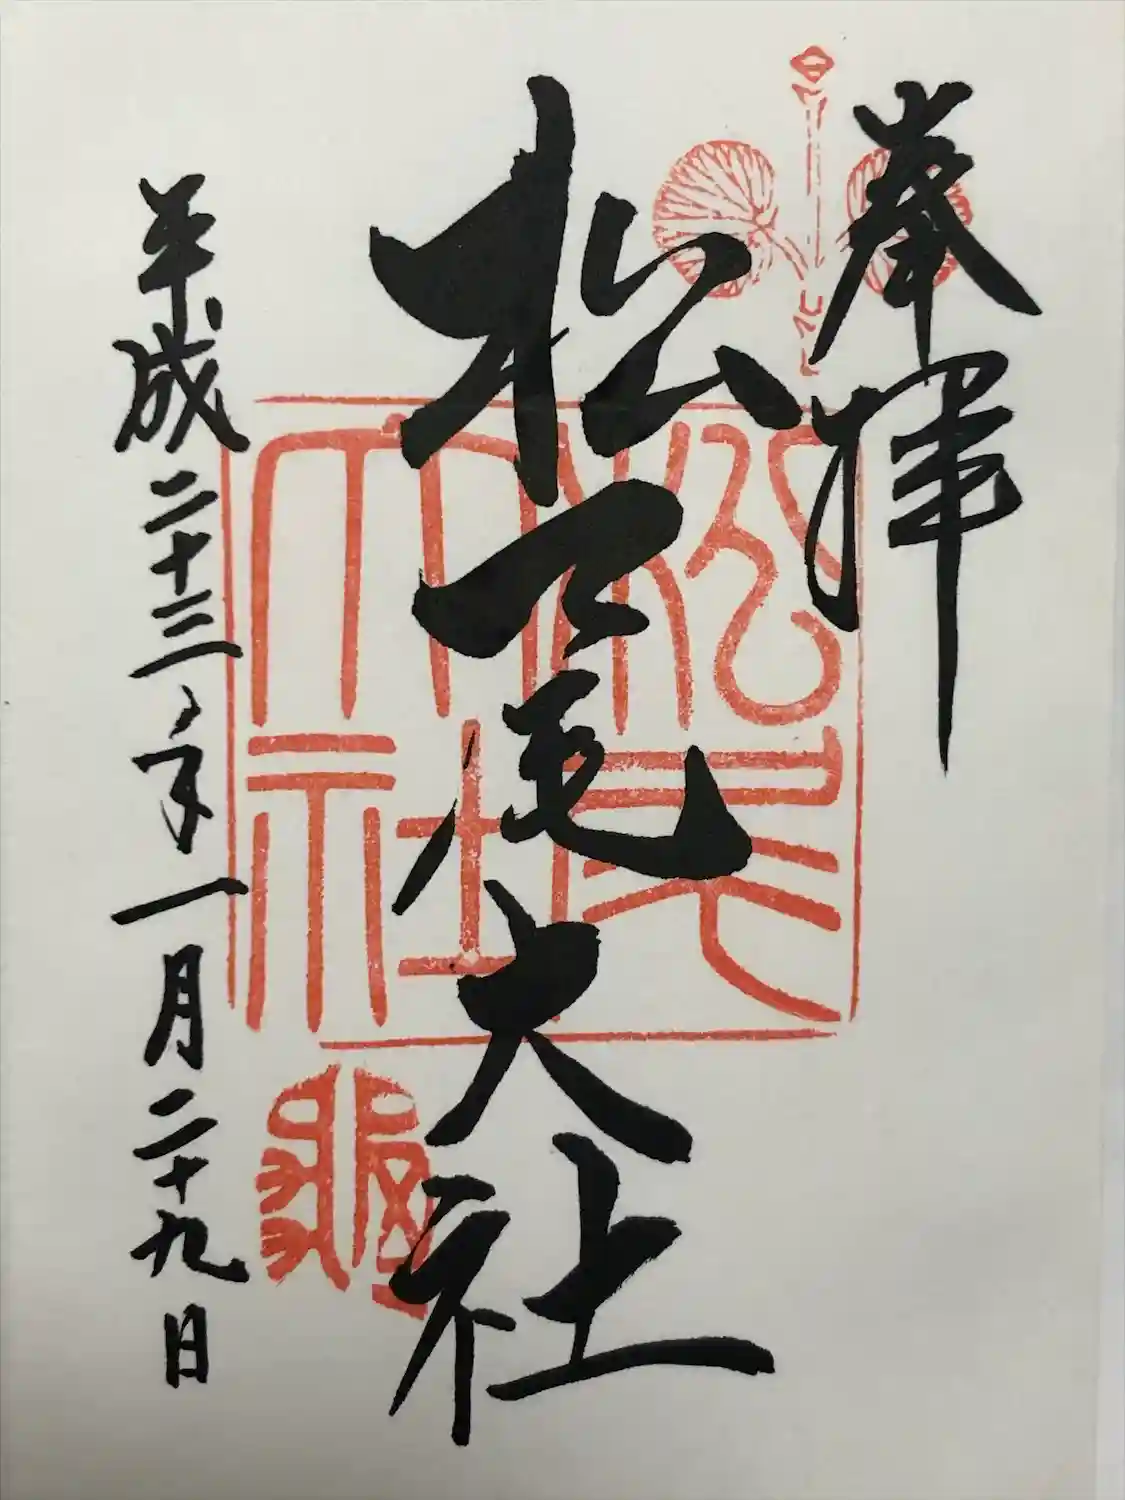 奉拝
松尾大社
平成二十三年一月二十九日
松尾大社